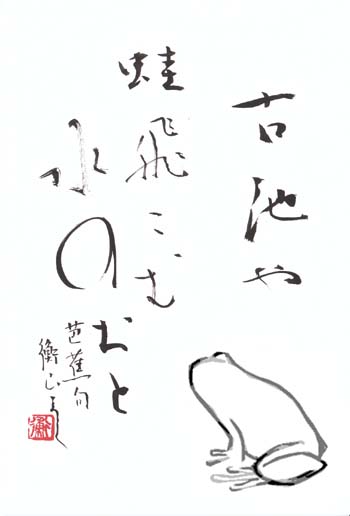 古池や
蛙飛こむ
水のおと
芭蕉句